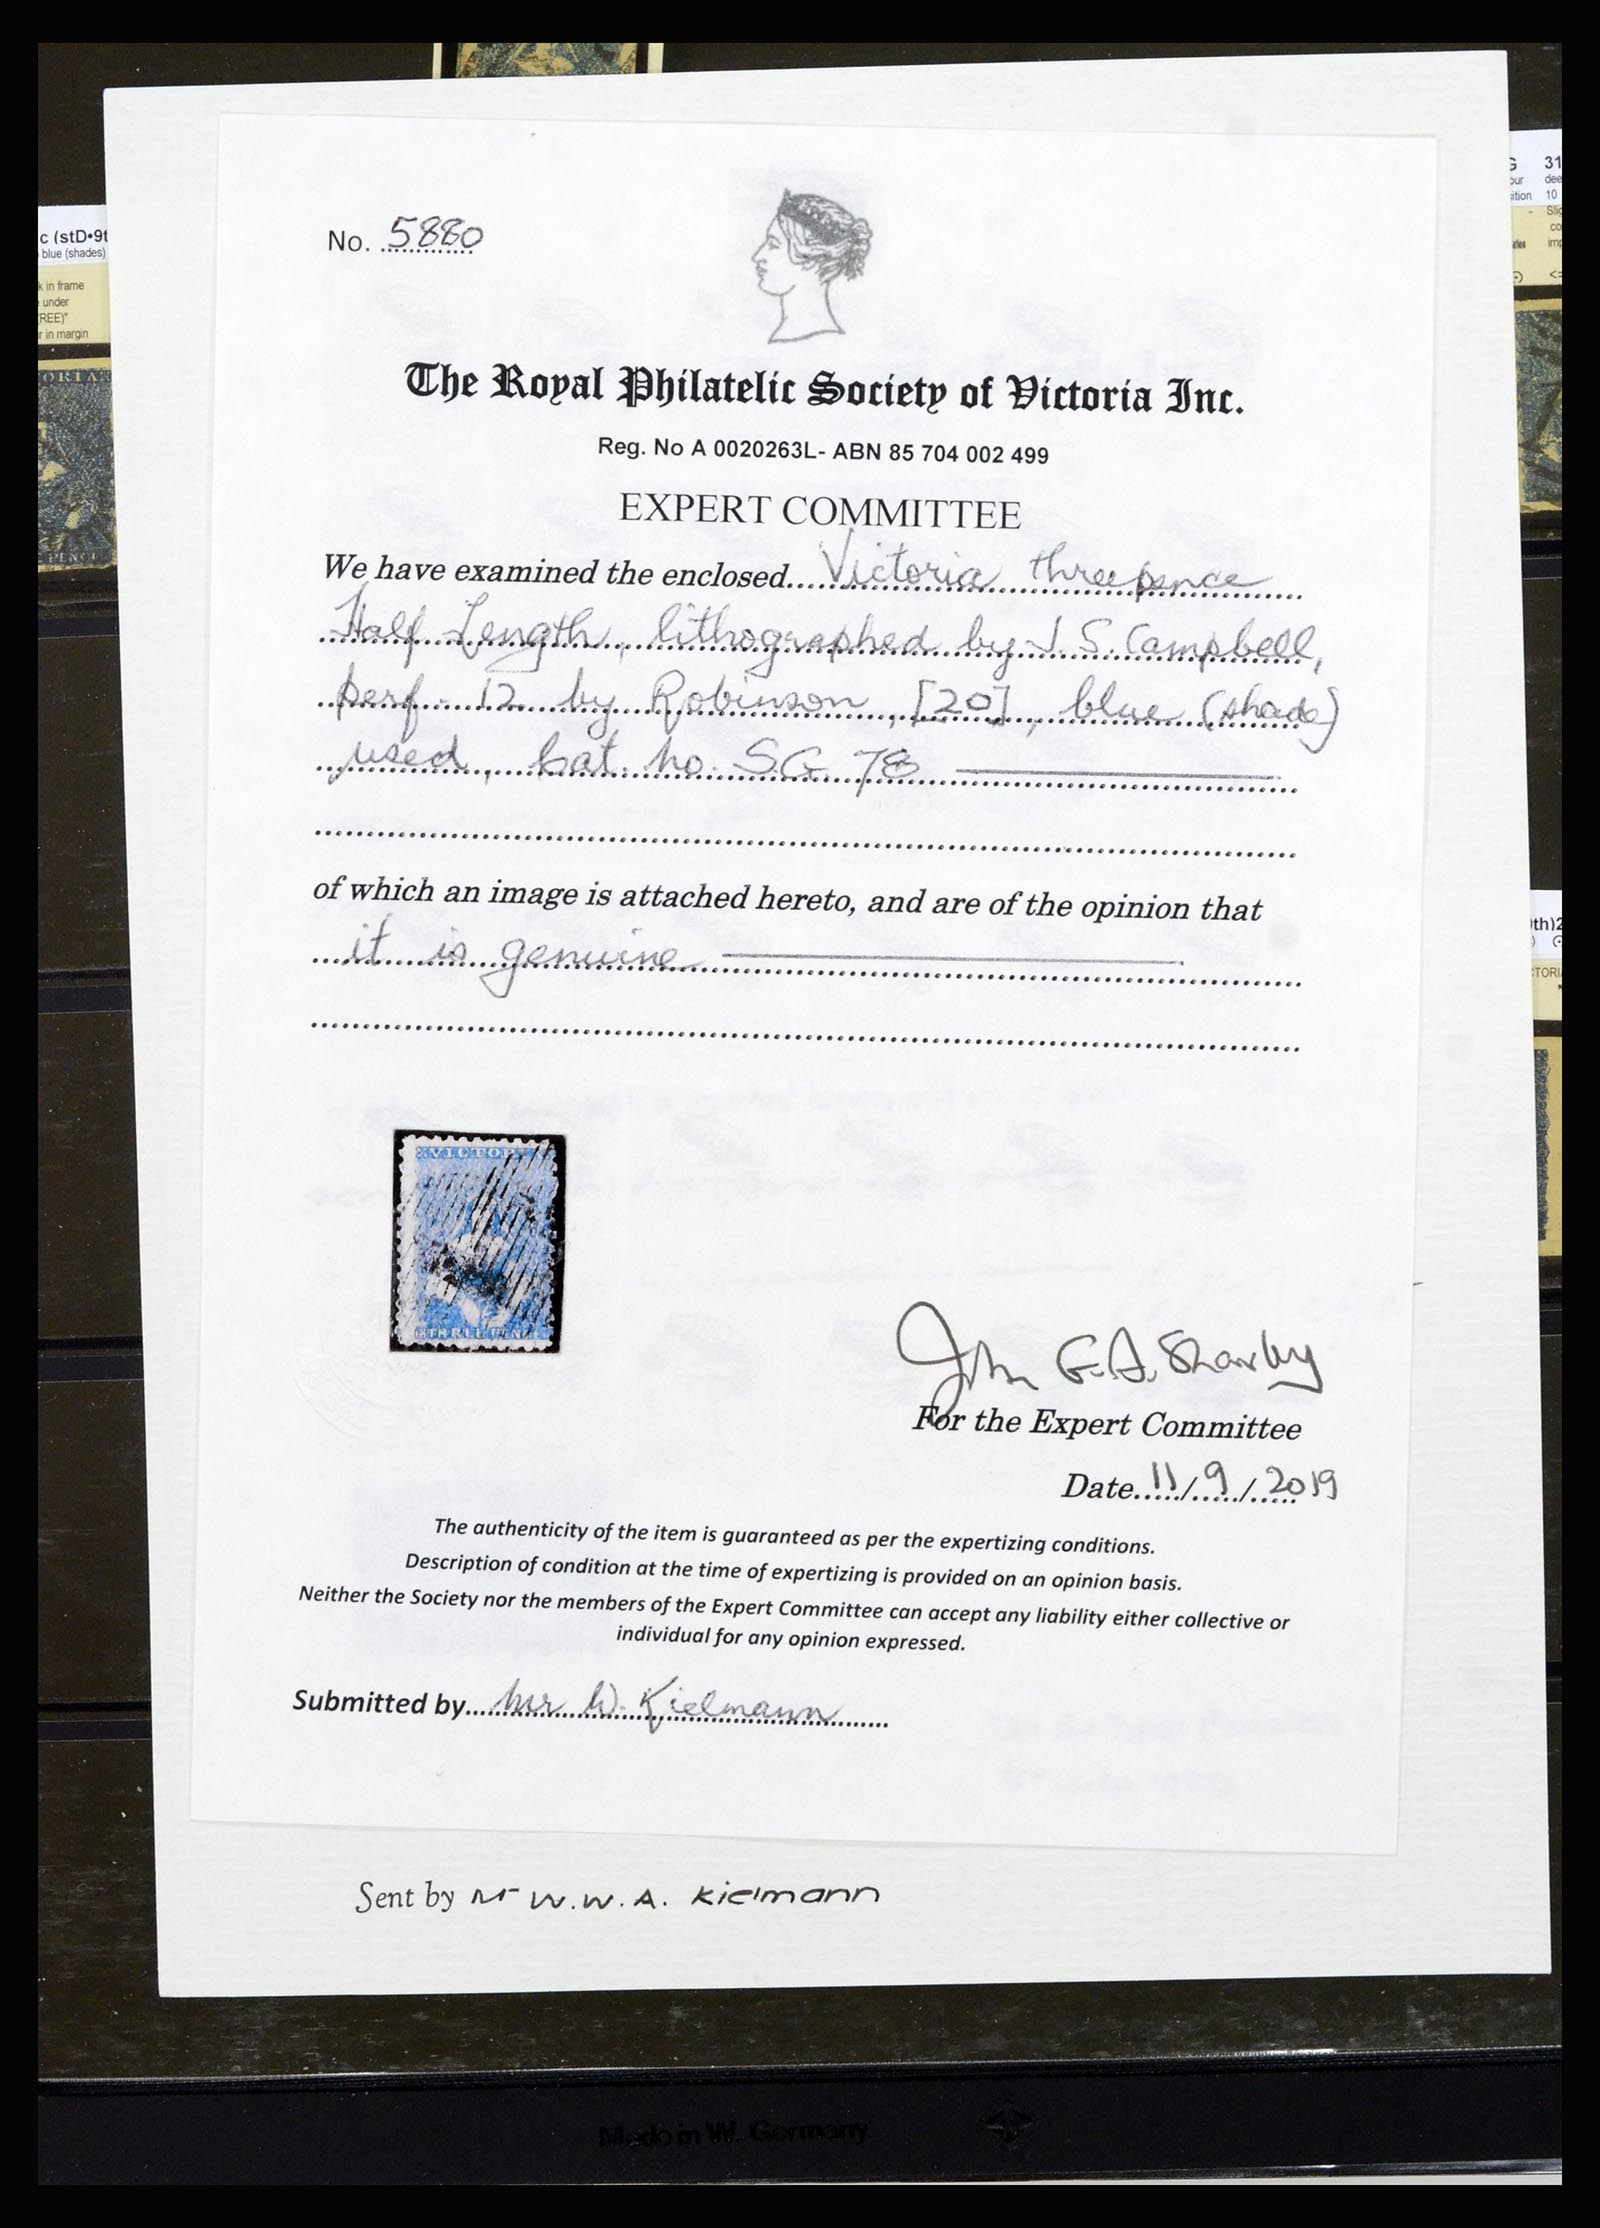 c (stD•9t
blue (shades)
k in frame
under
REE)"
r in margin
ORIA
PENC
G 31
our dee
ition 10
- Slig
co
imp
th)2
TORI
No. 5880
The Royal Philatelic Society of Victoria Inc.
Reg. No A 0020263L- ABN 85 704 002 499
EXPERT COMMITTEE
We have examined the enclosed....Victoria threepence
Half Length, lithographed by J. S. Campbell,
perf. 12 by Robinson, [20], blue (shade)
used, Cat. no. SG 78
of which an image is attached hereto, and are of the opinion that
it is genuine
VICTOR
THREE PENC
John G.A. Sharley
For the Expert Committee
Date 11/9/2019
The authenticity of the item is guaranteed as per the expertizing conditions.
Description of condition at the time of expertizing is provided on an opinion basis.
Neither the Society nor the members of the Expert Committee can accept any liability either collective or
individual for any opinion expressed.
Submitted by Mr W. Kielmann
Sent by Mr W.W.A. Kielmann
Made in W. Germany